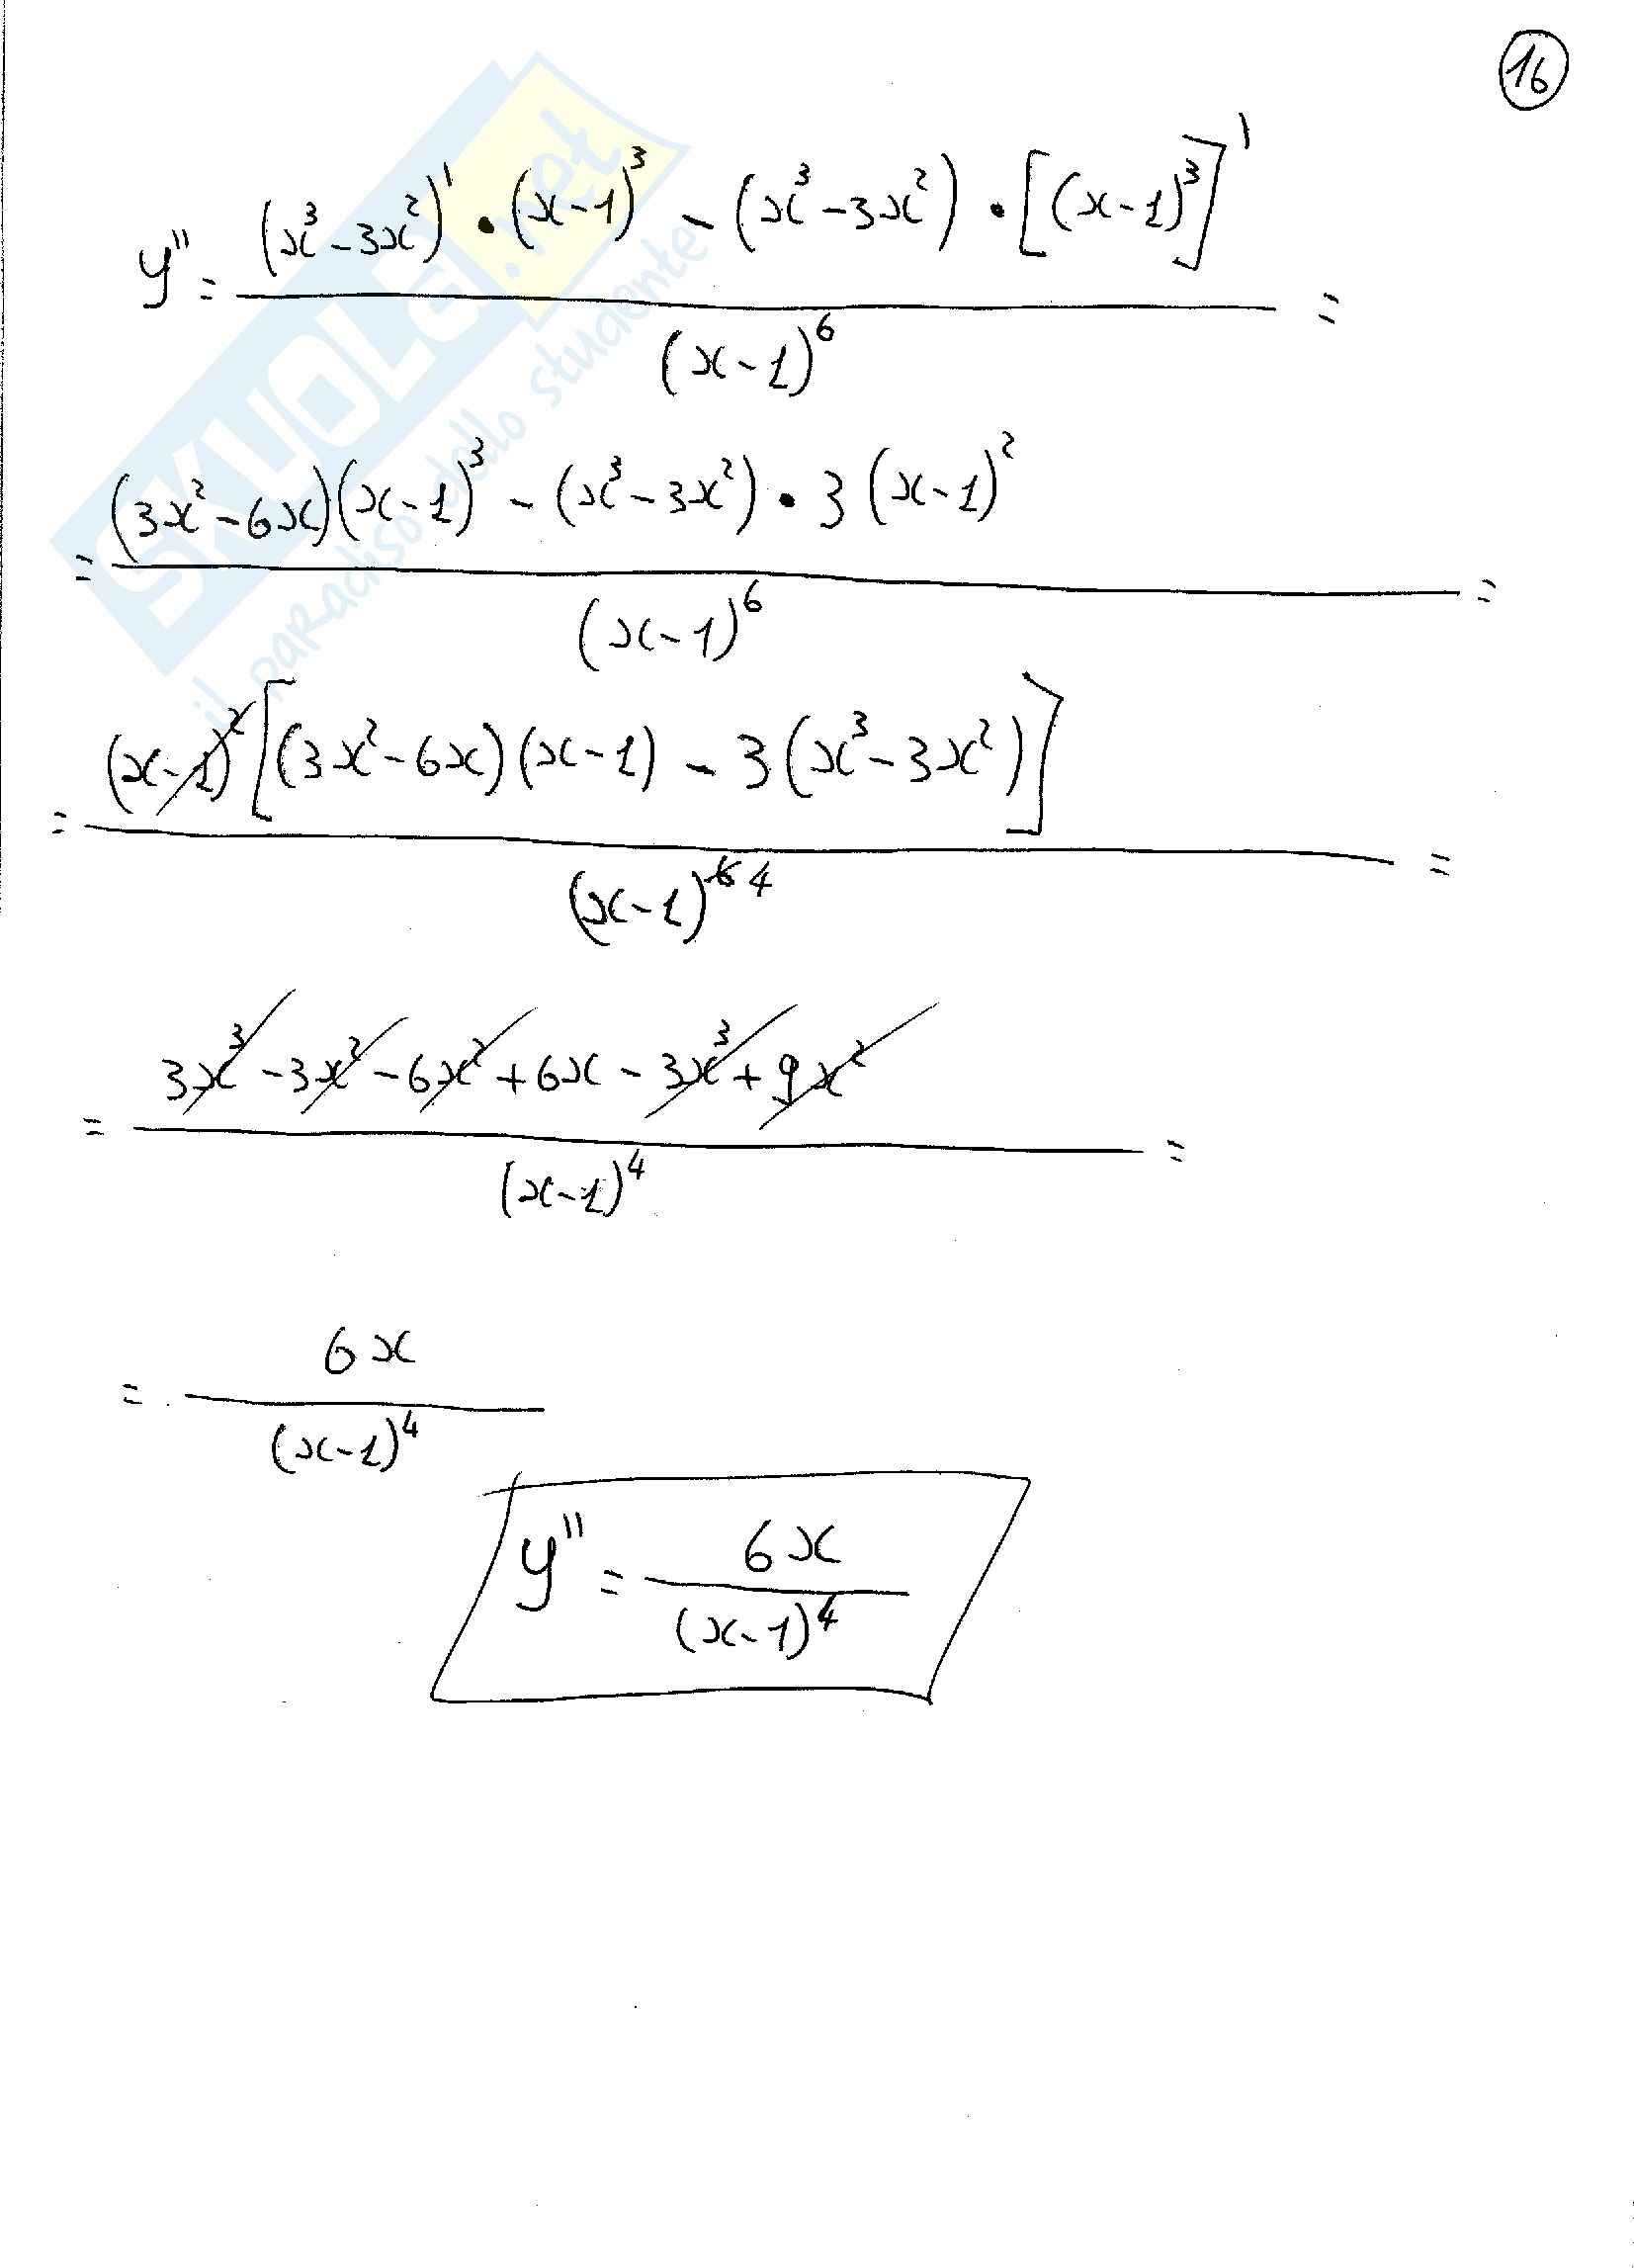 16
y'' = \frac{(x^3-3x^2)' \cdot (x-1)^3 - (x^3-3x^2) \cdot [(x-1)^3]'}{(x-1)^6} =
= \frac{(3x^2-6x)(x-1)^3 - (x^3-3x^2) \cdot 3(x-1)^2}{(x-1)^6} =
= \frac{(x-1)^2[(3x^2-6x)(x-1) - 3(x^3-3x^2)]}{(x-1)^{6 4}} =
= \frac{3x^3-3x^2-6x^2+6x-3x^3+9x^2}{(x-1)^4} =
= \frac{6x}{(x-1)^4}
y'' = \frac{6x}{(x-1)^4}
SKUOLA.net
il paradiso dello studente